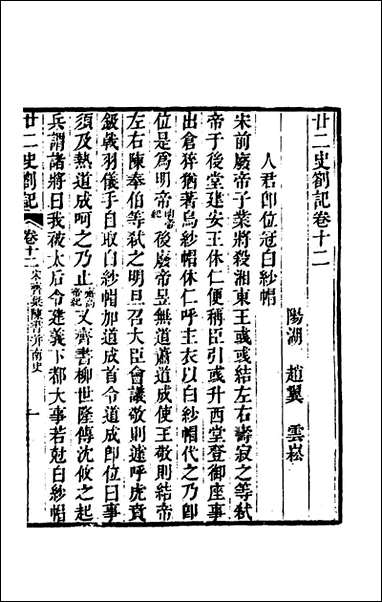 廿二史劄記卷十二
陽湖 趙翼 雲崧
人君即位冠白紗帽
宋前廢帝子業將殺湘東王彧彧結左右壽寂之等弑
帝于後堂建安王休仁便稱臣引彧升西堂登御座事
出倉猝猶著烏紗帽休仁呼主衣以白紗帽代之乃即
位是為明帝明帝紀後廢帝昱無道蕭道成使王敬則結帝
左右陳奉伯等弑之明旦召大臣會議敬則遂呼虎賁
鈒戟羽儀手自取白紗帽加道成首令道成即位曰事
須及熱道成呵之乃止齊高帝紀又齊書柳世隆傳沈攸之起
兵謂諸將曰我被太后令建義下都大事若尅白紗帽
廿二史劄記 卷十二 宋齊梁陳書并南史 一